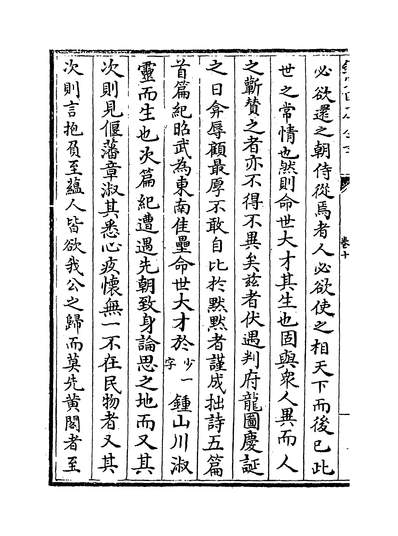 必欲還之朝侍從焉者人必欲使之相天下而後已此
世之常情也然則命世大才其生也固與衆人異而人
之蘄賛之者亦不得不異矣兹者伏遇判府龍圖慶誕
之日弇辱顧最厚不敢自比於黙黙者謹成拙詩五篇
首篇紀昭武為東南佳壘命世大才於少一字鍾山川淑
靈而生也次篇紀遭遇先朝致身論思之地而又其
次則見偃藩章淑其悉心疚懷無一不在民物者又其
次則言抱負至藴人皆欲我公之歸而莫先黄閣者至
卷十